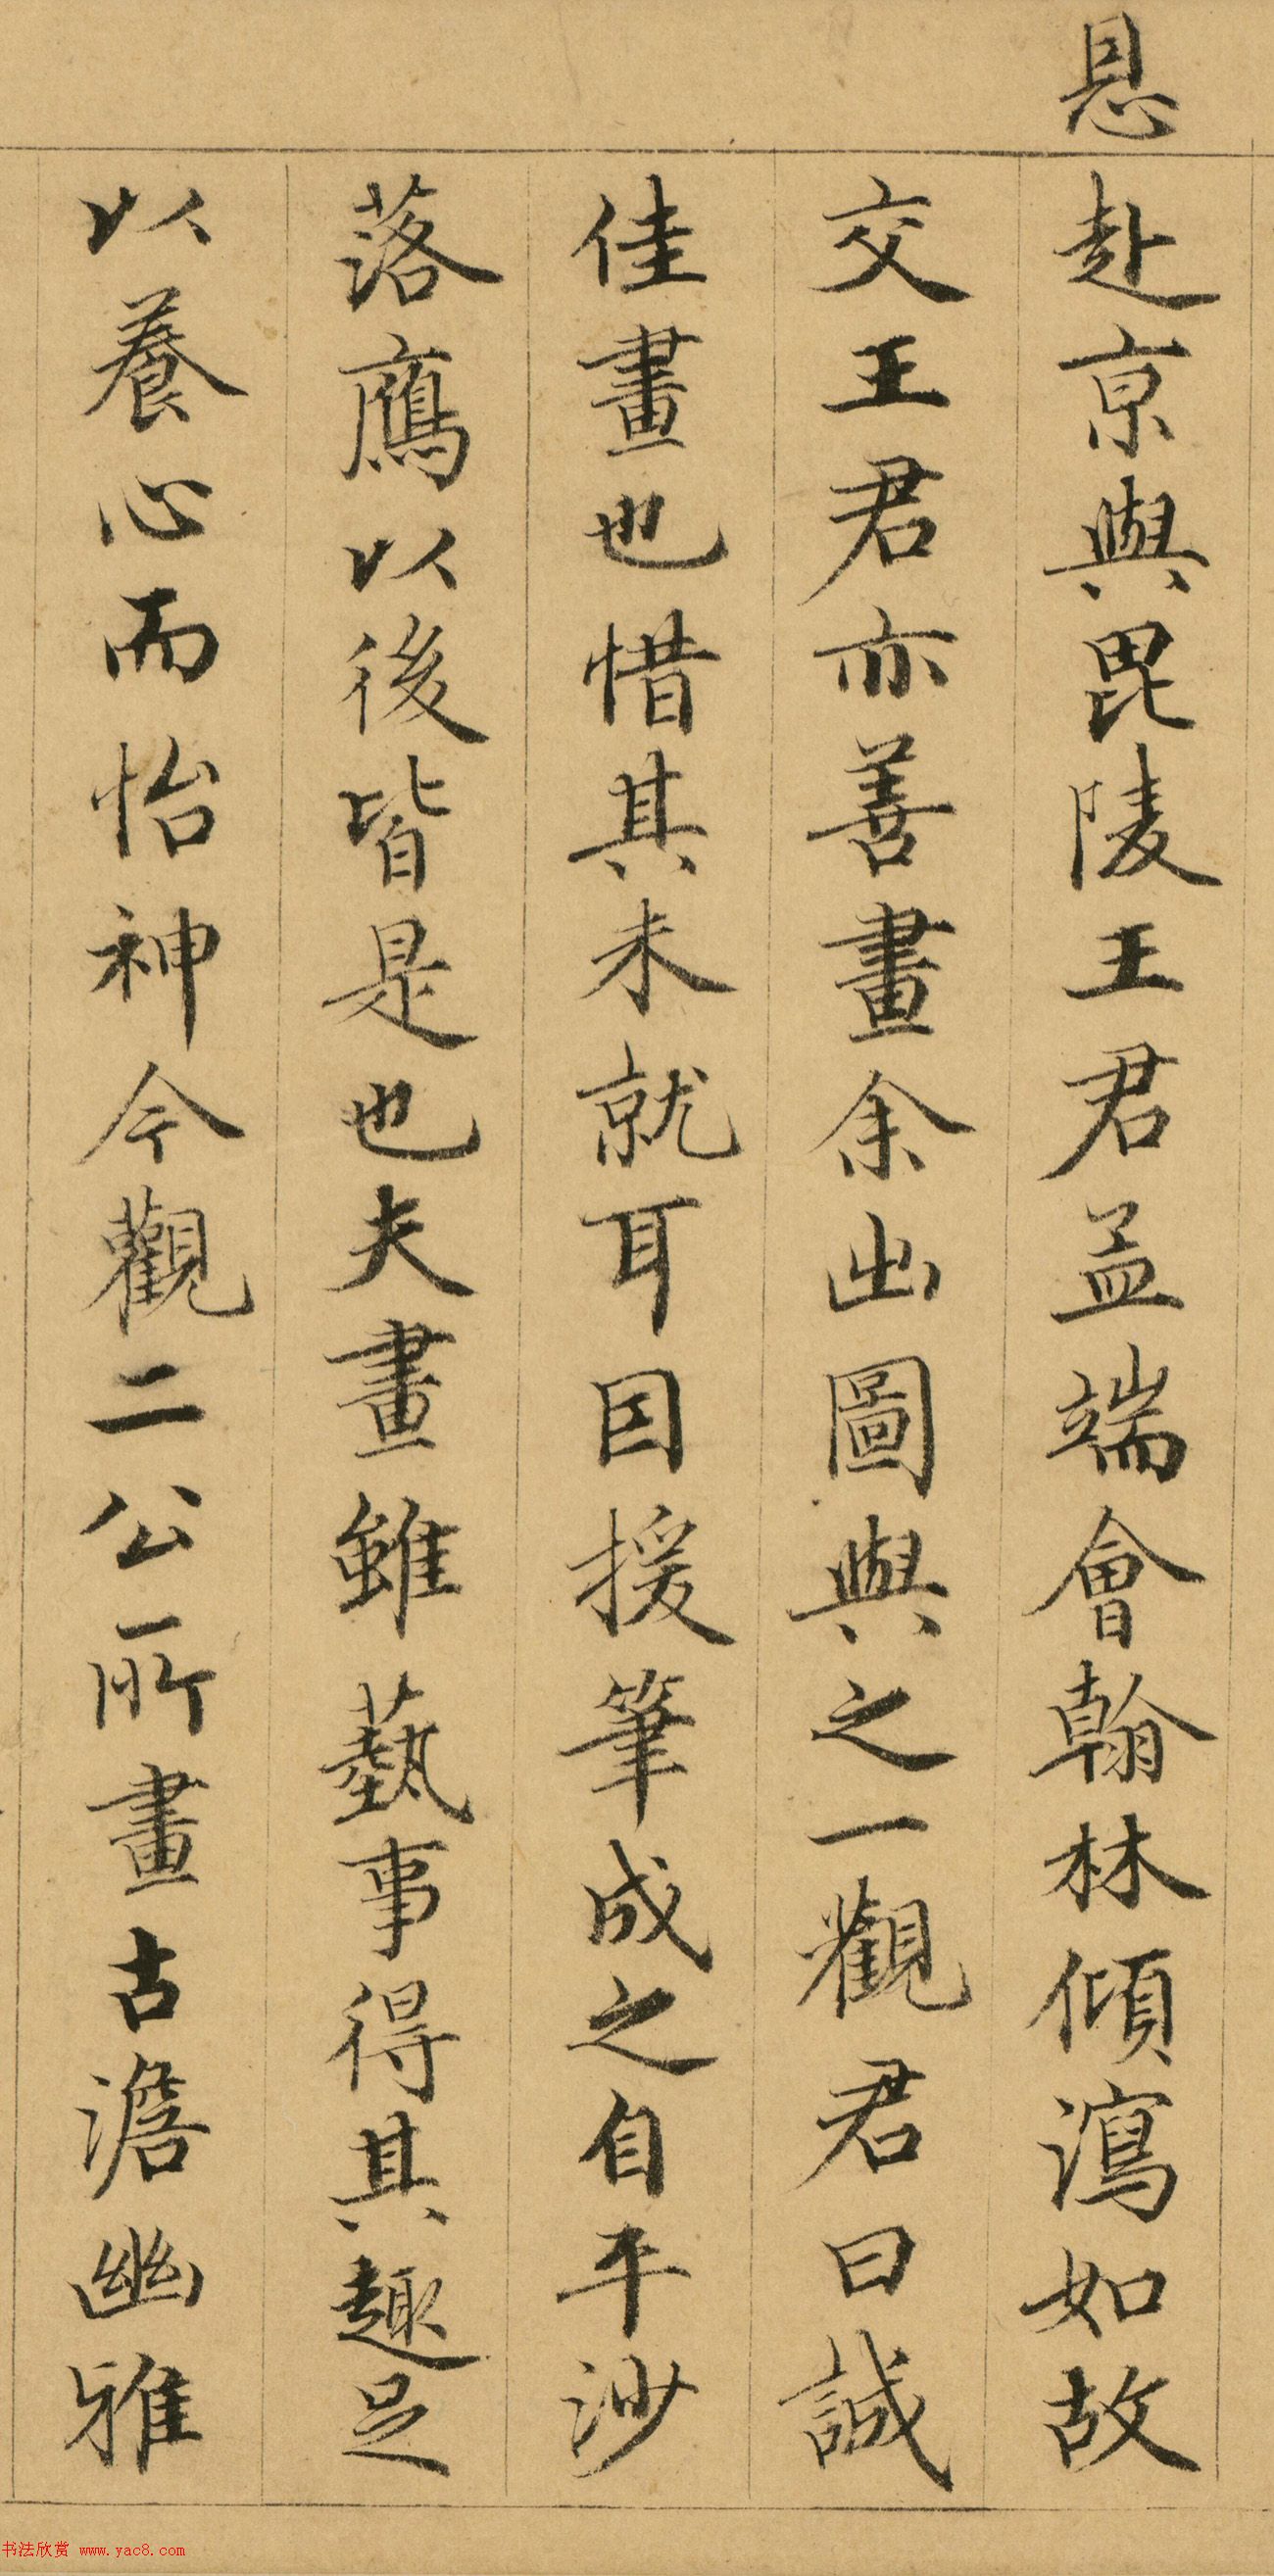 恩赴京與毘陵王君孟端會翰林傾瀉如故
交王君亦善畫余出圖與之一觀君曰誠
佳畫也惜其未就耳因援筆成之自平沙
落鴈以後皆是也夫畫雖藝事得其趣足
以養心而怡神今觀二公所畫古澹幽雅
书法欣赏 www.yac8.com